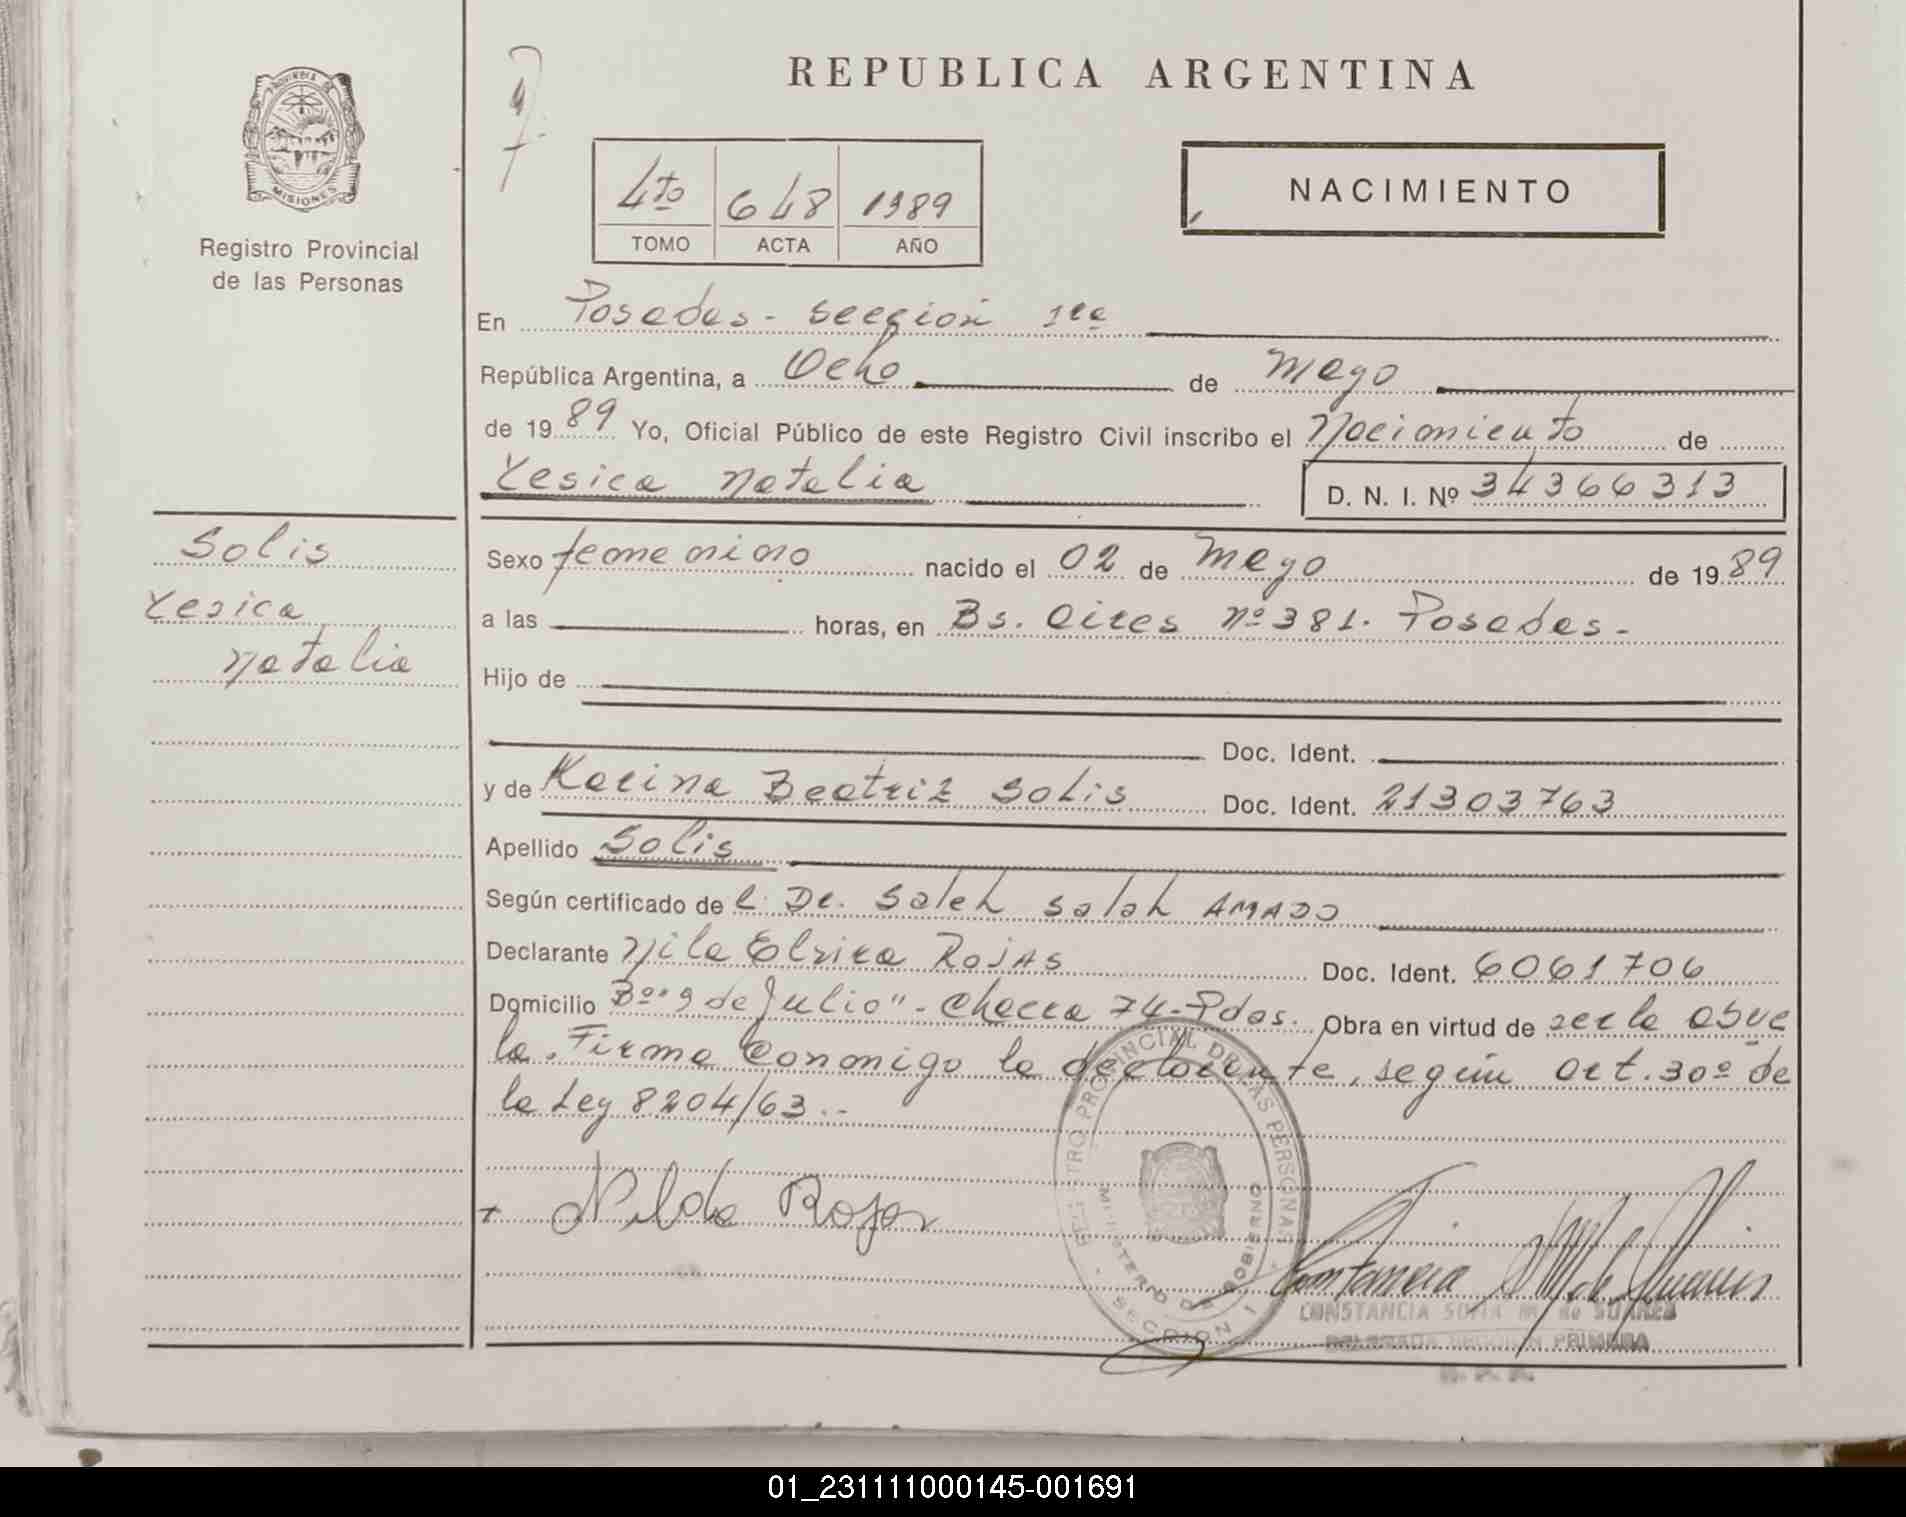 REPUBLICA ARGENTINA
PROVINCIA DE
MISIONES
Registro Provincial
de las Personas
4to 648 1989
TOMO ACTA AÑO
NACIMIENTO
En Posadas - Sección 1ra
República Argentina, a Ocho de Mayo
de 1989 Yo, Oficial Público de este Registro Civil inscribo el Nacimiento de
Yesica Natalia D. N. I. Nº 34366313
Solis
Yesica
Natalia
Sexo femenino nacido el 02 de Mayo de 1989
a las horas, en Bs. Aires Nº 381. Posadas.
Hijo de
Doc. Ident.
y de Karina Beatriz Solis Doc. Ident. 21303763
Apellido Solis
Según certificado de l. Dr. Saleh Salah AMADO
Declarante Elvira ROJAS Doc. Ident. 6061706
Domicilio Bº "9 de Julio" - Chacra 74 - Pdas. Obra en virtud de ser la abue
la. Firma Conmigo la declarante, según Art. 30º de
la Ley 8204/63.-
+ Nilda Rojas
REGISTRO PROVINCIAL DE LAS PERSONAS
MINISTERIO DE GOBIERNO
SECCION 1
Constancia M de Suarez
CONSTANCIA SOFIA M. de SUAREZ
DELEGADA SECCION PRIMERA
R. P. P.
01_231111000145-001691